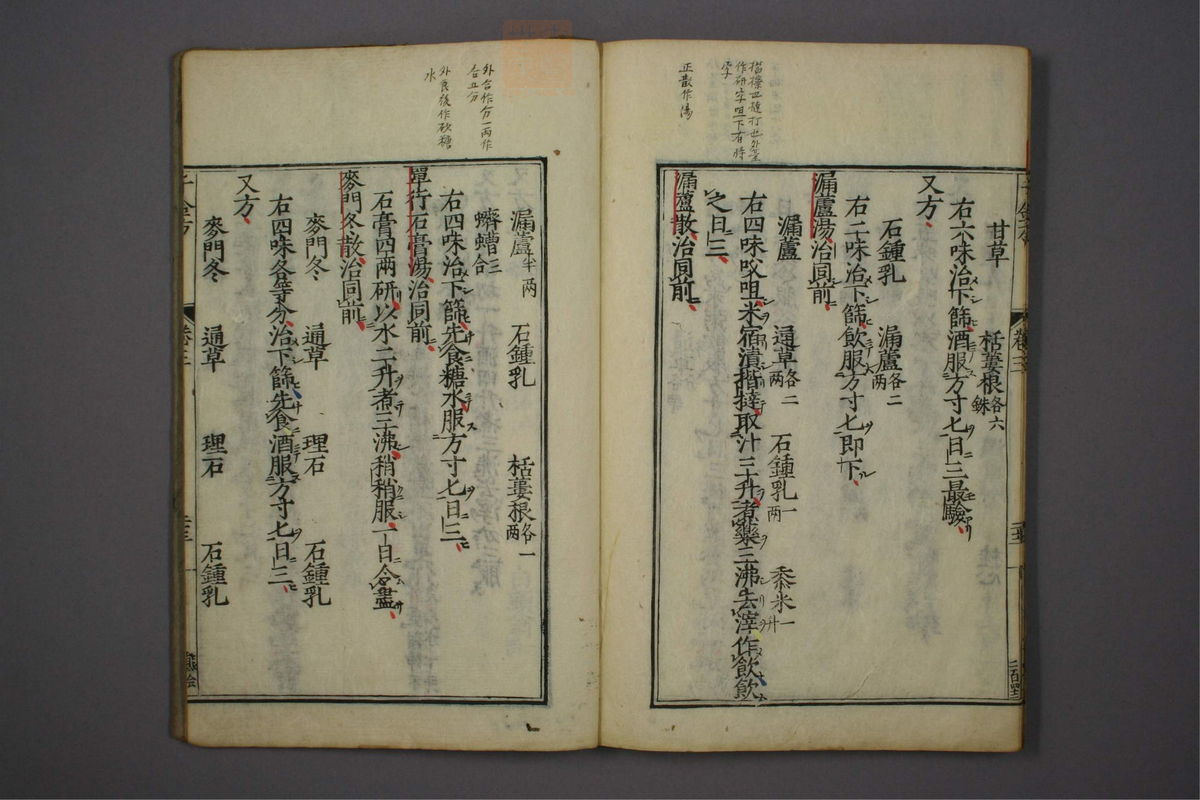 甘草　栝蔞根各六銖
右六味治下篩酒服方寸匕日三最驗
又方
石鍾乳　漏蘆各二兩
右二味治下篩飲服方寸匕即下
漏蘆湯治同前
漏蘆　通草各二兩　石鍾乳一兩　黍米一升
右四味㕮咀米宿漬揩撻取汁三升煮藥三沸去滓作飲飲
之日三
漏蘆散治同前
漏蘆半兩　石鍾乳　栝蔞根各一兩
蠐螬三合
右四味治下篩先食糖水服方寸匕日三
單行石膏湯治同前
石膏四兩研以水二升煮三沸稍稍服一日令盡
麥門冬散治同前
麥門冬　通草　理石　石鍾乳
右四味各等分治下篩先食酒服方寸匕日三
又方
麥門冬　通草　理石　石鍾乳
卷三
正散作湯
外合作分一兩作
合五分
外食後作砂糖
水